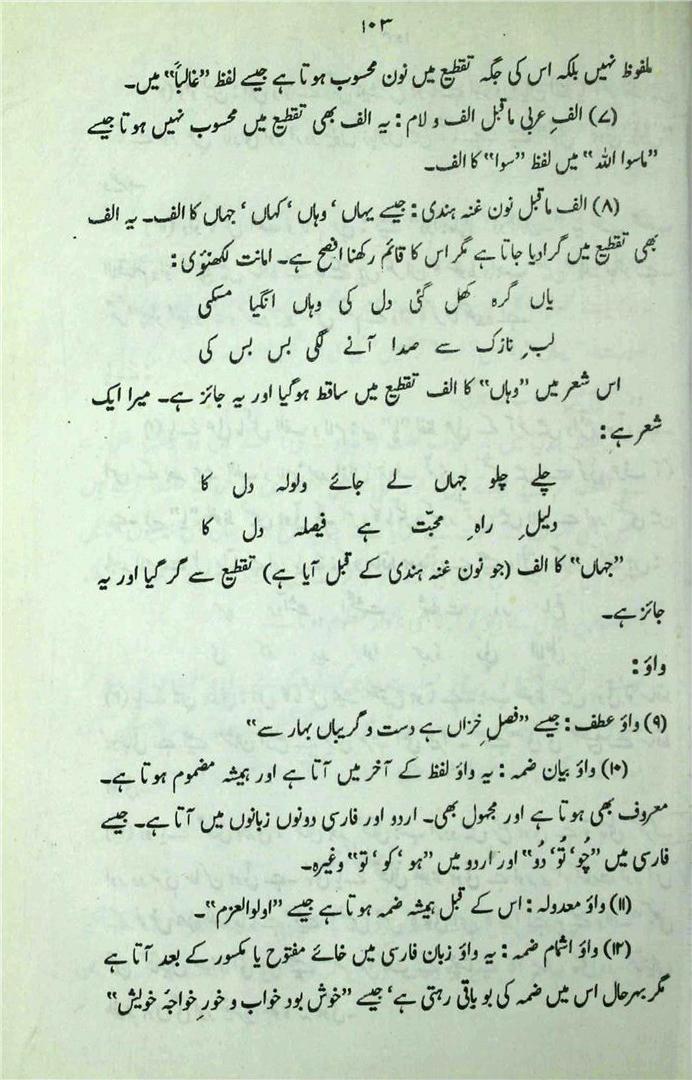 ۱۰۳
ملفوظ نہیں بلکہ اس کی جگہ تقطیع میں نون محسوب ہوتا ہے جیسے لفظ ”غالباً“ میں۔
(۷) الفِ عربی ماقبل الف و لام : یہ الف بھی تقطیع میں محسوب نہیں ہوتا جیسے
”ماسوا اللہ“ میں لفظ ”سوا“ کا الف۔
(۸) الف ماقبل نون غنہ ہندی : جیسے یہاں‘ وہاں‘ کہاں‘ جہاں کا الف۔ یہ الف
بھی تقطیع میں گرا دیا جاتا ہے مگر اس کا قائم رکھنا افصح ہے۔ امانت لکھنؤی :
یاں گرہ کھل گئی دل کی وہاں انگیا مسکی
لبِ نازک سے صدا آنے لگی بس بس کی
اس شعر میں ”وہاں“ کا الف تقطیع میں ساقط ہوگیا اور یہ جائز ہے۔ میرا ایک
شعر ہے :
چلے چلو جہاں لے جائے ولولہ دل کا
دلیلِ راہِ محبّت ہے فیصلہ دل کا
”جہاں“ کا الف (جو نون غنہ ہندی کے قبل آیا ہے) تقطیع سے گر گیا اور یہ
جائز ہے۔
واؤ :
(۹) واؤ عطف : جیسے ”فصلِ خزاں ہے دست و گریباں بہار سے“
(۱۰) واؤ بیان ضمہ : یہ واؤ لفظ کے آخر میں آتا ہے اور ہمیشہ مضموم ہوتا ہے۔
معروف بھی ہوتا ہے اور مجہول بھی۔ اردو اور فارسی دونوں زبانوں میں آتا ہے۔ جیسے
فارسی میں ”چُو‘ تُو‘ دُو“ اور اردو میں ”ہو‘ کو‘ تو“ وغیرہ۔
(۱۱) واؤ معدولہ : اس کے قبل ہمیشہ ضمہ ہوتا ہے جیسے ”اولوالعزم“۔
(۱۲) واؤ اشمام ضمہ : یہ واؤ زبان فارسی میں خائے مفتوح یا مکسور کے بعد آتا ہے
مگر بہرحال اس میں ضمہ کی بو باقی رہتی ہے‘ جیسے ”خوش بود خواب و خورِ خواجۂ خویش“